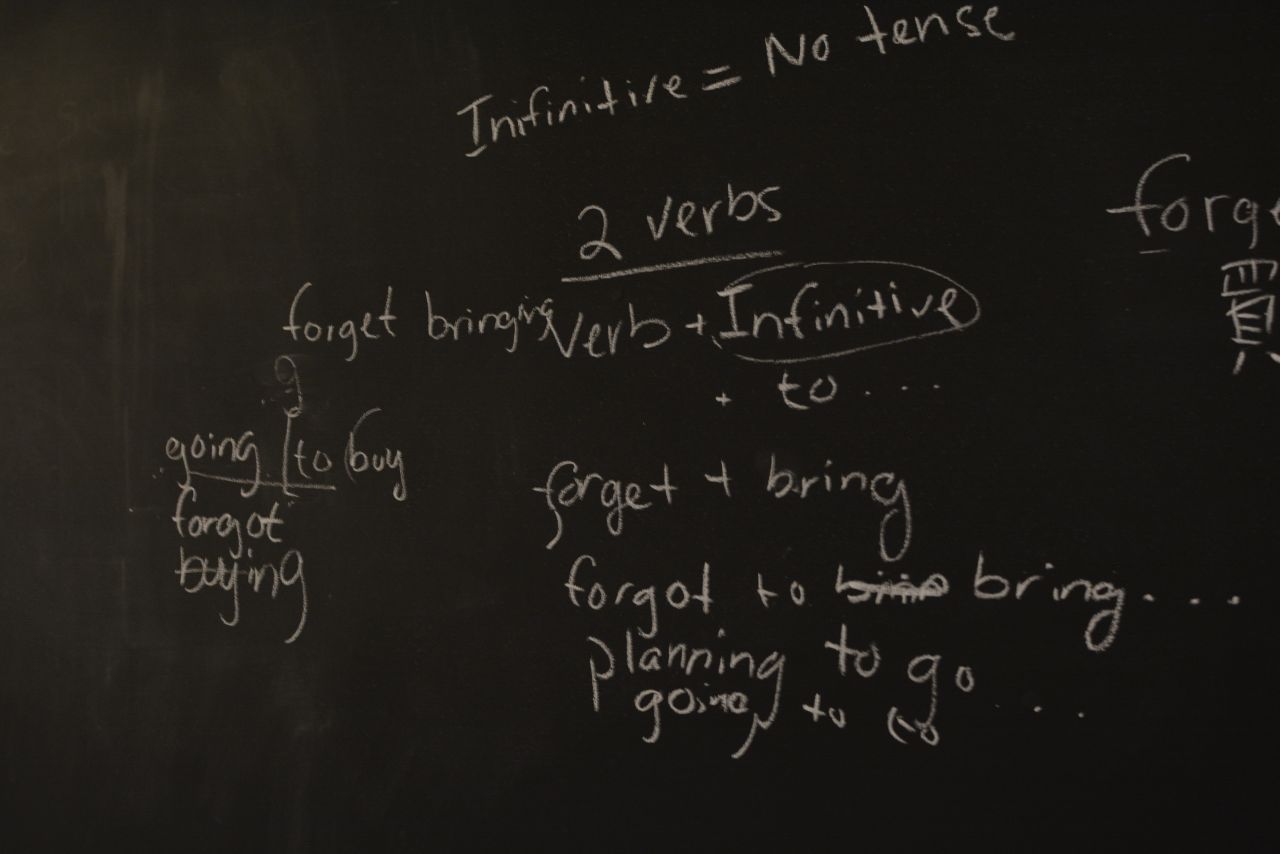 Inifinitive = No tense
2 verbs
forget bringing Verb + Infinitive
+ to ....
going to buy
forgot
buying
forget + bring
forgot to bring....
planning to go
going to go ...
forg